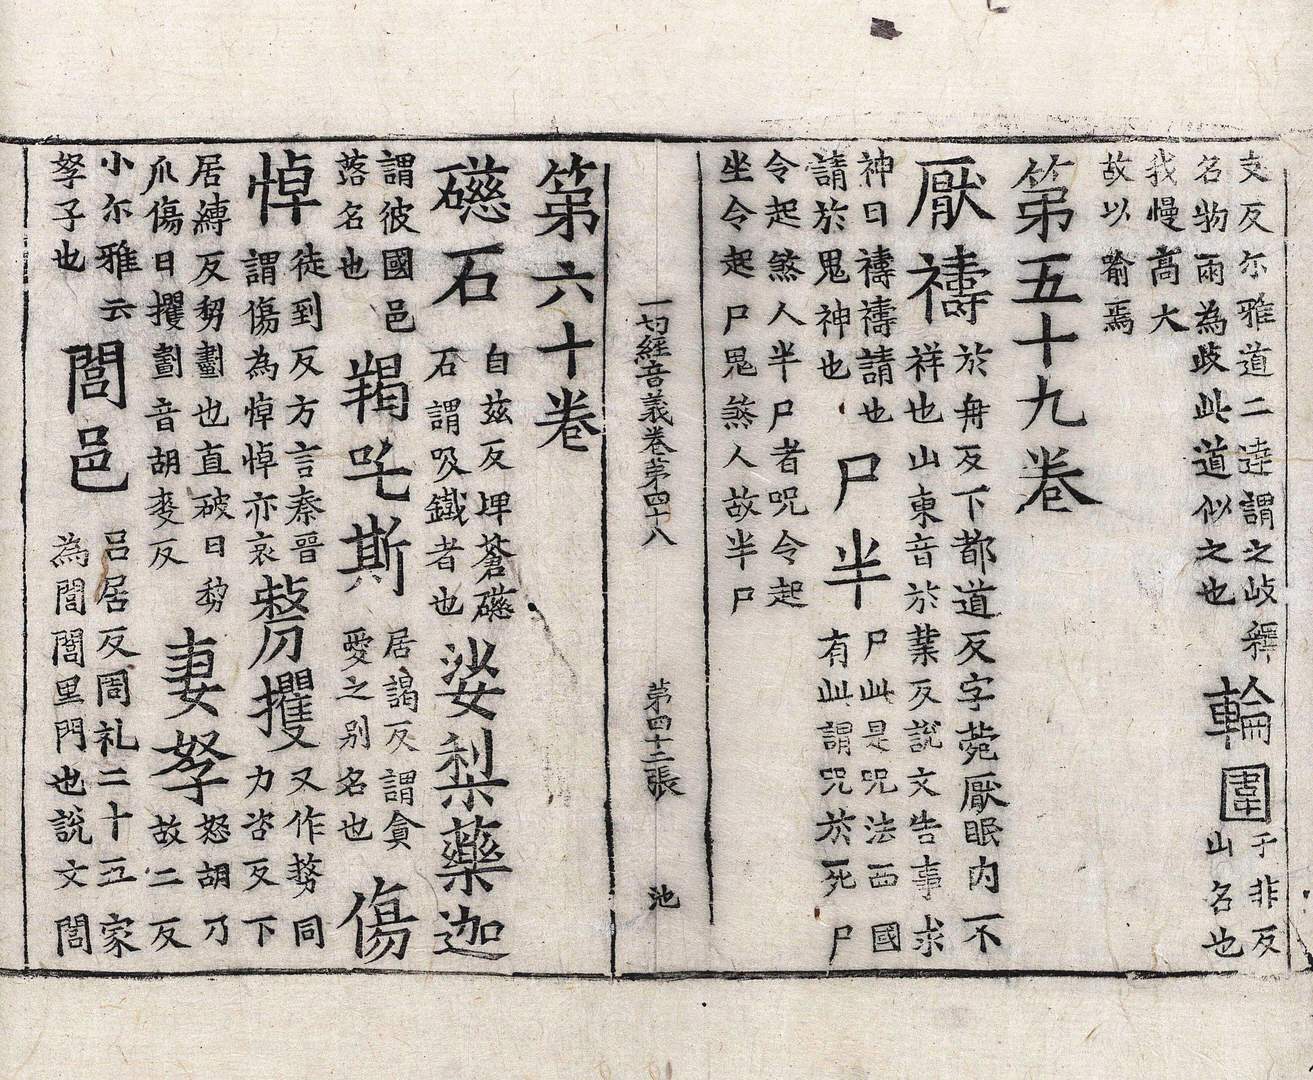 支反尓雅道二逵謂之歧釋
名物兩為歧此道似之也
輪圍
于非反
山名也
我慢高大
故以喻焉
第五十九卷
厭禱
於冉反下都道反字菀厭眠內不
祥也山東音於葉反說文告事求
神曰禱禱請也
請於鬼神也
尸半
尸此是咒法西國
有此謂咒於死尸
令起煞人半尸者咒令起
坐令起尸鬼煞人故半尸
一切經音義卷第四十八 第四十二張 池
第六十卷
礠石
自兹反埤蒼礠
石謂吸鐵者也
娑梨藥迦
謂彼國邑
落名也
羯吒斯
居謁反謂貪
愛之別名也
傷悼
徒到反方言秦晉
謂傷為悼悼亦哀
剺攫
又作剺同
力咨反下
居縛反剺劃也直破曰剺
爪傷曰攫劃音胡麥反
妻孥
怒胡乃
故二反
小尔雅云
孥子也
閭邑
呂居反周礼二十五家
為閭閭里門也說文閭